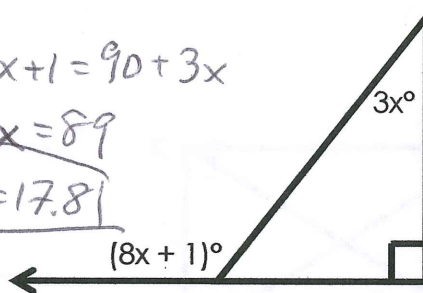 x+1=90+3x
x=89
=17.8
3xº
(8x + 1)º